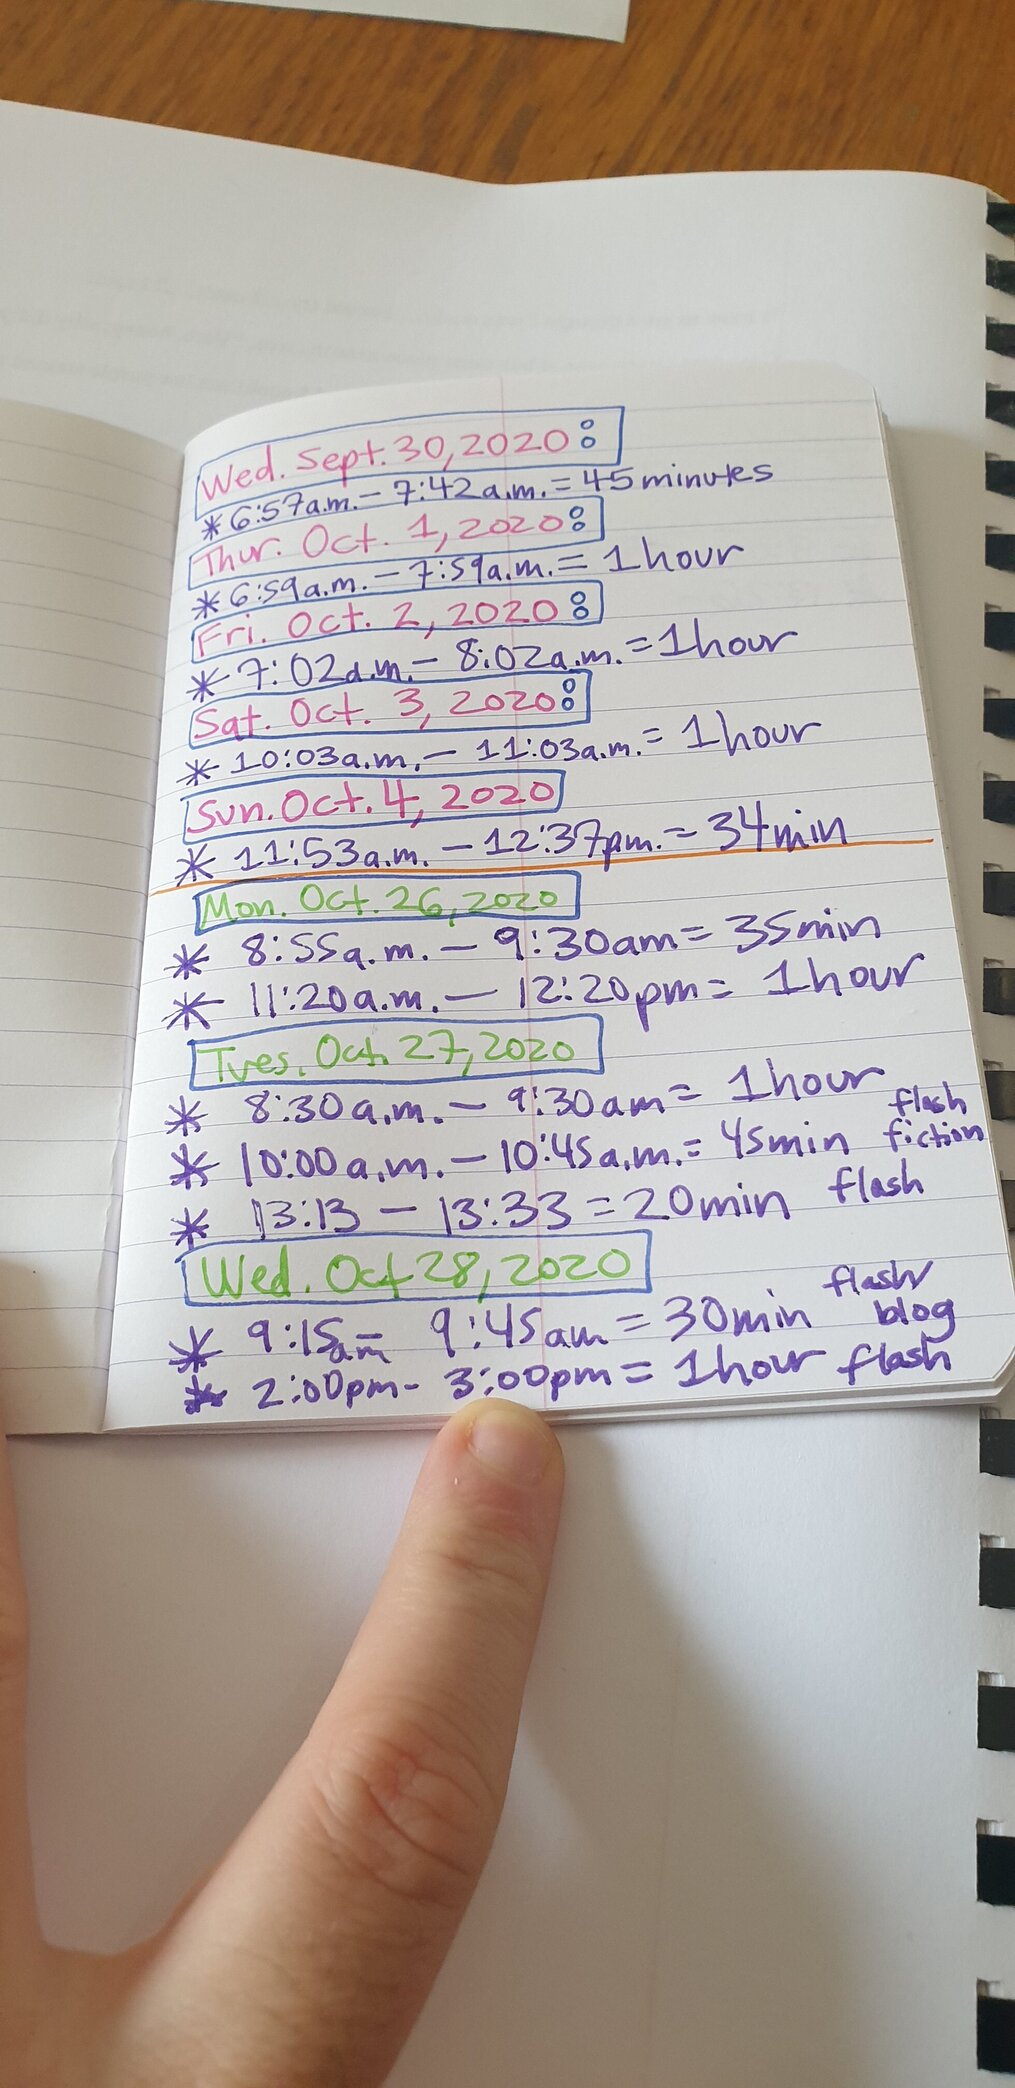 Wed. Sept. 30, 2020:
* 6:57a.m. - 7:42a.m. = 45 minutes
Thur. Oct. 1, 2020:
* 6:59a.m. - 7:59a.m. = 1 hour
Fri. Oct. 2, 2020:
* 7:02a.m. - 8:02a.m. = 1 hour
Sat. Oct. 3, 2020:
* 10:03a.m. - 11:03a.m. = 1 hour
Sun. Oct. 4, 2020
* 11:53a.m. - 12:37pm. = 34min
Mon. Oct. 26, 2020
* 8:55a.m. - 9:30am = 35min
* 11:20a.m. - 12:20pm = 1 hour
Tues. Oct. 27, 2020
* 8:30a.m. - 9:30am = 1 hour
* 10:00a.m. - 10:45a.m. = 45min flash fiction
* 13:13 - 13:33 = 20min flash
Wed. Oct 28, 2020
* 9:15am - 9:45am = 30min flash/ blog
* 2:00pm - 3:00pm = 1 hour flash